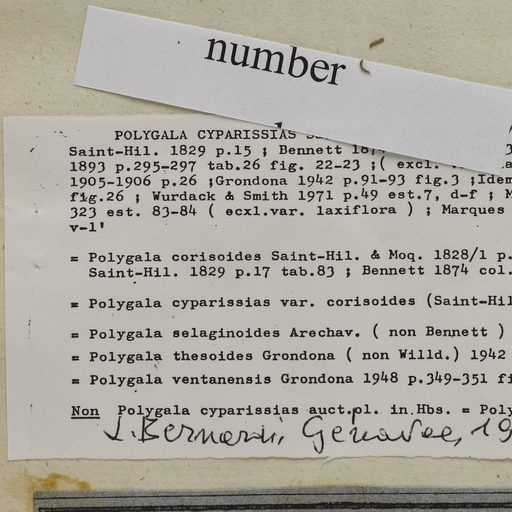 number
POLYGALA CYPARISSIAS
Saint-Hil. 1829 p.15 ; Bennett
1893 p.295-297 tab.26 fig. 22-23 ;( excl.
1905-1906 p.26 ;Grondona 1942 p.91-93 fig.3 ;Idem
fig.26 ; Wurdack & Smith 1971 p.49 est.7, d-f ; M
323 est. 83-84 ( ecxl.var. laxiflora ) ; Marques
v-1'
= Polygala corisoides Saint-Hil. & Moq. 1828/1 p.
Saint-Hil. 1829 p.17 tab.83 ; Bennett 1874 col.
= Polygala cyparissias var. corisoides (Saint-Hil
= Polygala selaginoides Arechav. ( non Bennett )
= Polygala thesoides Grondona ( non Willd.) 1942
= Polygala ventanensis Grondona 1948 p.349-351 fi
Non Polygala cyparissias auct.pl. in Hbs. = Poly
L. Bernardi, Genavae, 19